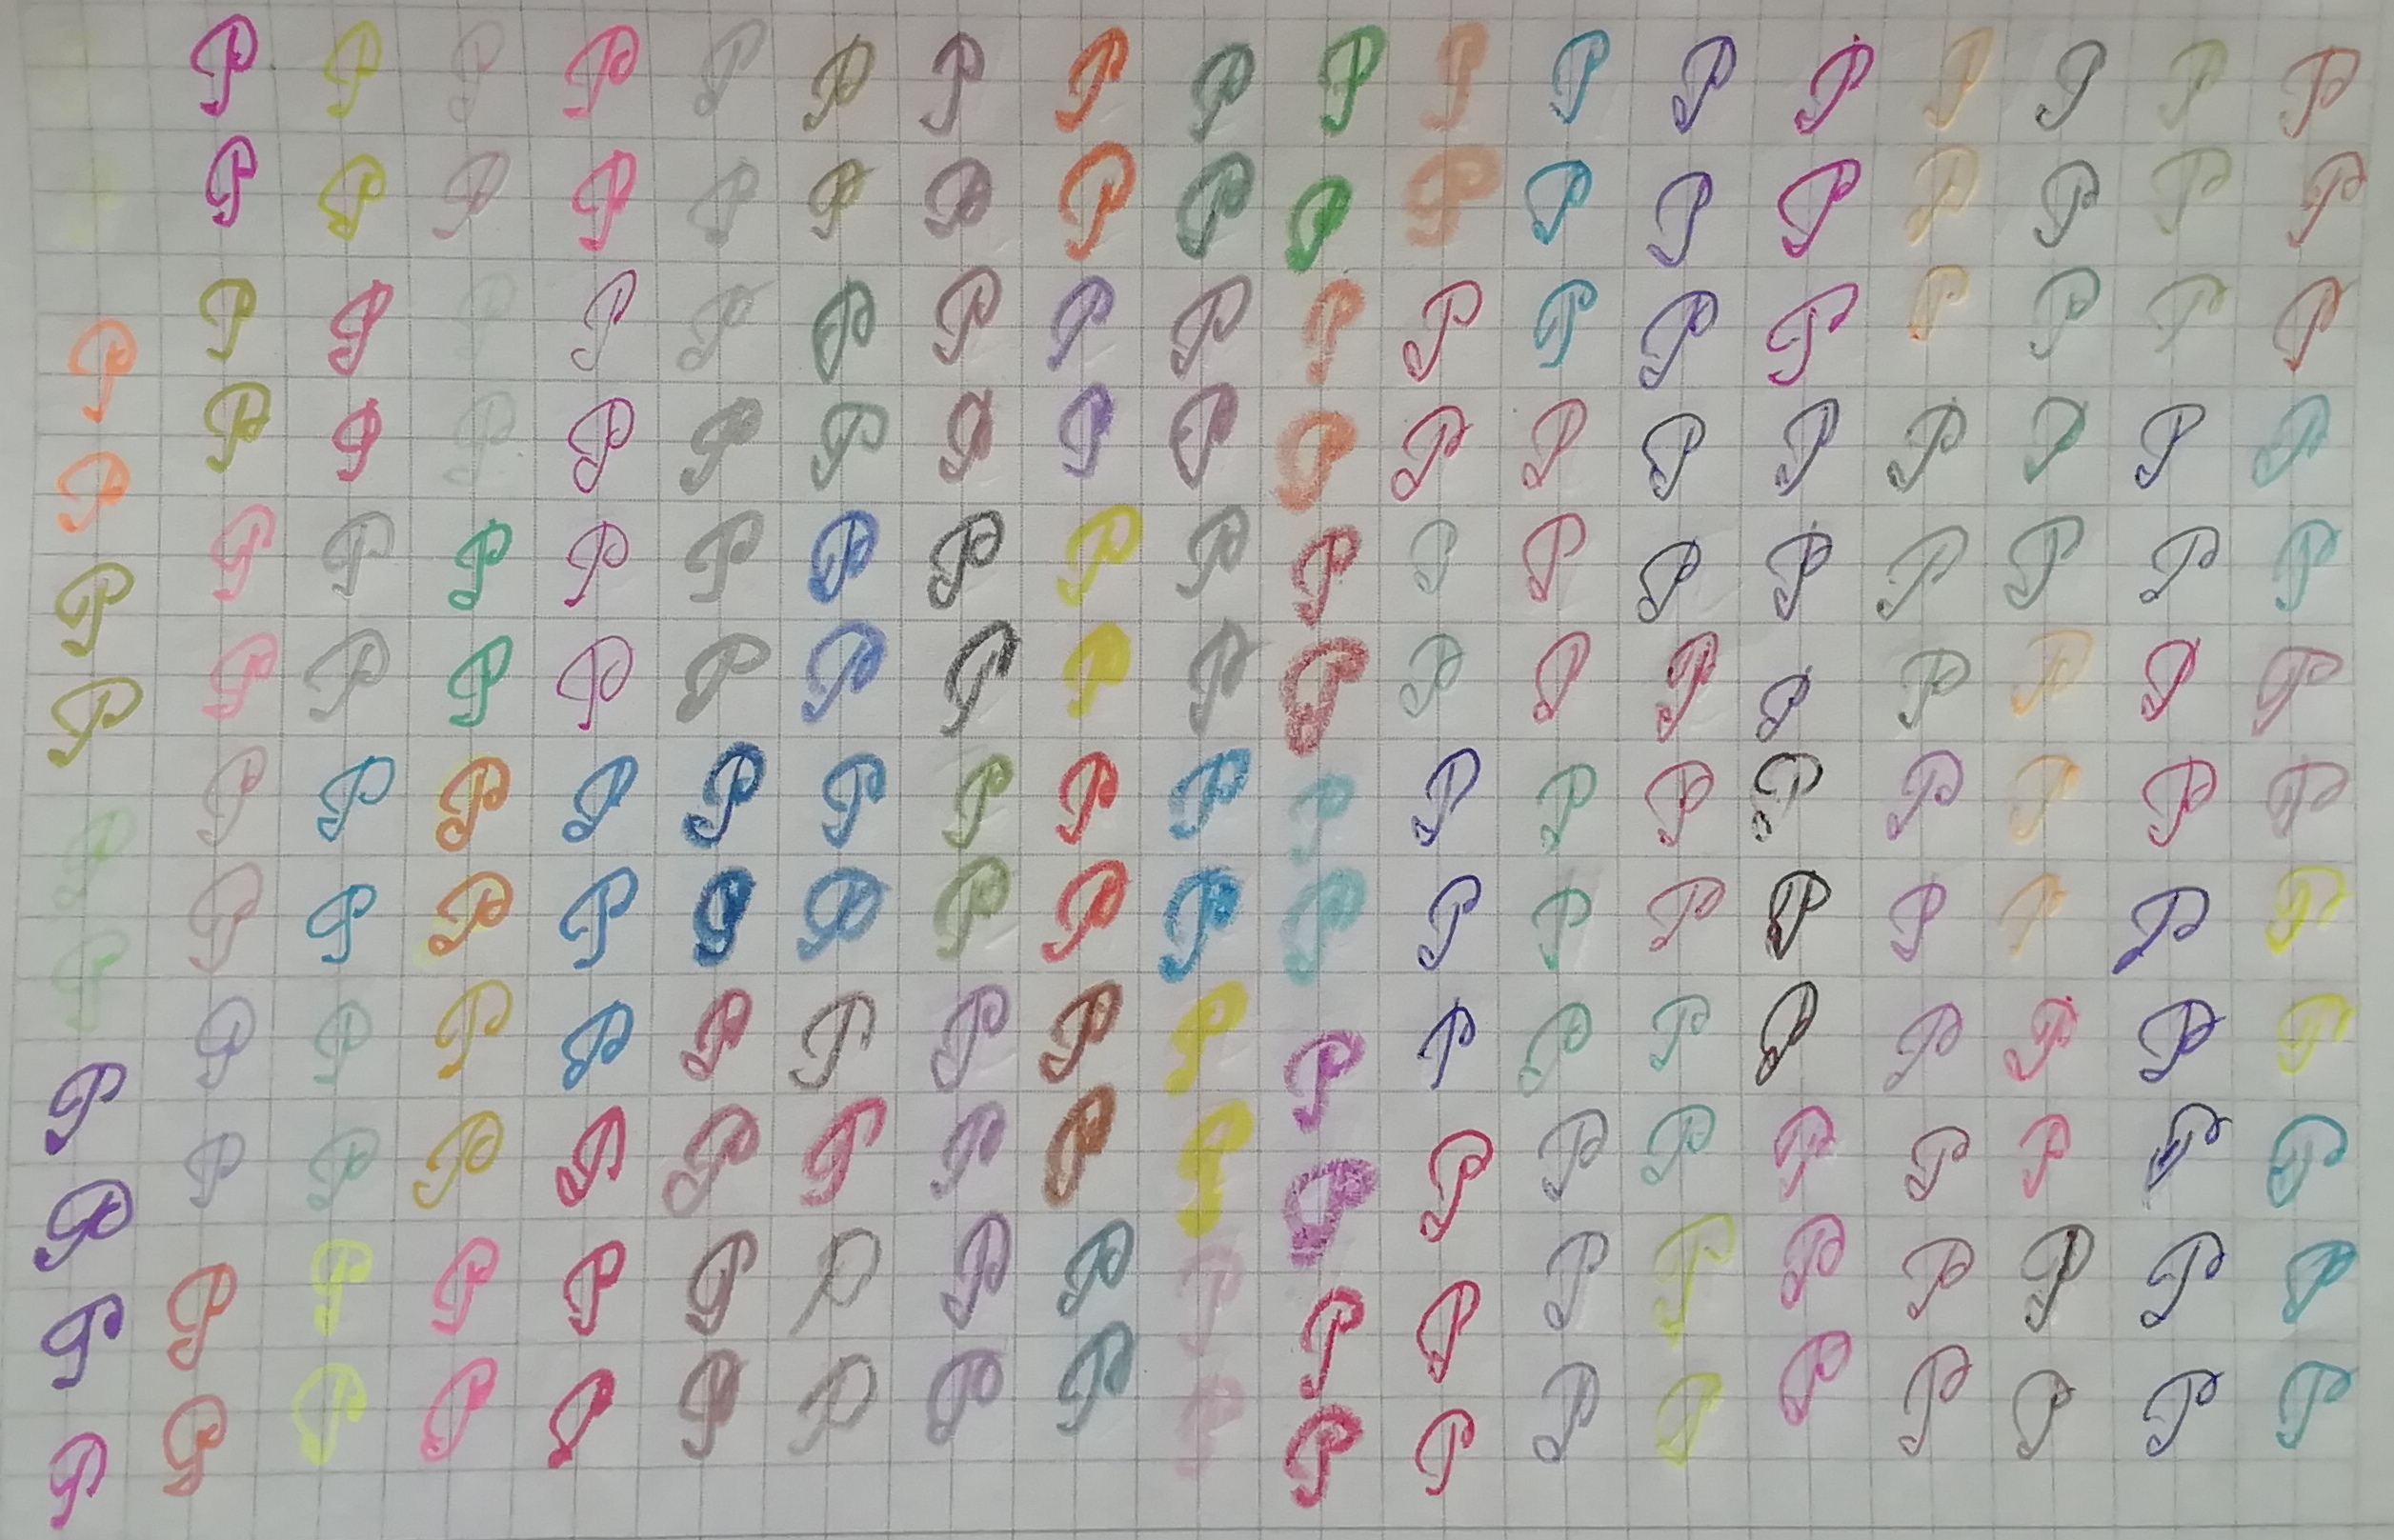 P P P P P P P P P P P P P P P P P P
P P P P P P P P P P P P P P P P P P
P P P P P P P P P P P P P P P P P P P
P P P P P P P P P P P P P P P P P P P
P P P P P P P P P P P P P P P P P P P
P P P P P P P P P P P P P P P P P P P
P P P P P P P P P P P P P P P P P P P
P P P P P P P P P P P P P P P P P P P
P P P P P P P P P P P P P P P P P P P
P P P P P P P P P P P P P P P P P P P
P P P P P P P P P P P P P P P P P P P
P P P P P P P P P P P P P P P P P P P